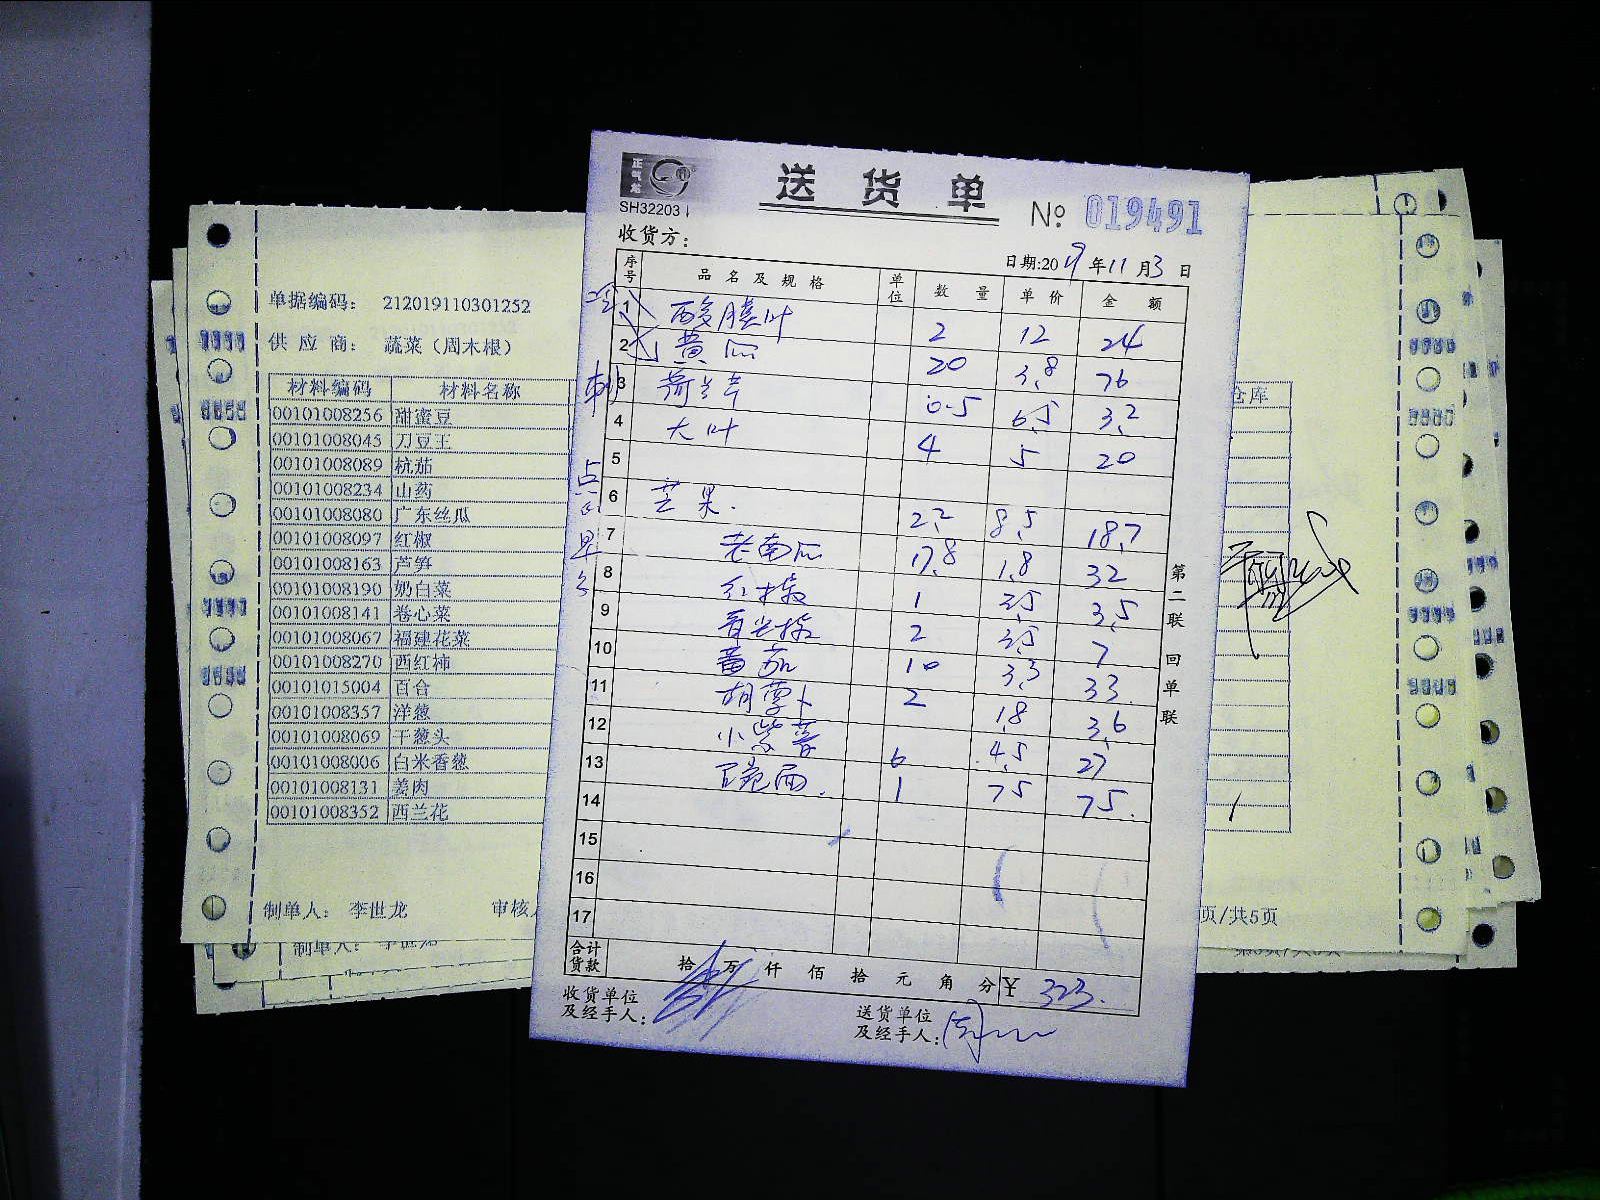 正气龙
SH32203
送货单
№ 019491
收货方：
日期:2019年11月3日
序号 品名及规格 单位 数量 单价 金额
1 酸膜叶 2 12 24
2 黄瓜 20 3.8 76
3 荷兰芹 0.5 6.5 3.2
4 大叶 4 5 20
5
6 芒果. 2.2 8.5 18.7
7 老南瓜 17.8 1.8 32
8 红椒 1 3.5 3.5
9 青尖椒 2 3.5 7
10 番茄 10 3.3 33
11 胡萝卜 2 1.8 3.6
12 小紫薯 6 4.5 27
13 豌豆 1 75 75.
14
15
16
17
合计货款 拾 万 仟 佰 拾 元 角 分 ¥ 323.
收货单位及经手人：
送货单位及经手人: 周
第二联 回单联
单据编码： 212019110301252
供应商： 蔬菜（周木根）
材料编码 材料名称
00101008256 甜蜜豆
00101008045 刀豆王
00101008089 杭茄
00101008234 山药
00101008080 广东丝瓜
00101008097 红椒
00101008163 芦笋
00101008190 奶白菜
00101008141 卷心菜
00101008067 福建花菜
00101008270 西红柿
00101015004 百合
00101008357 洋葱
00101008069 干葱头
00101008006 白米香葱
00101008131 姜肉
00101008352 西兰花
制单人： 李世龙 审核人
仓库
页/共5页
制单人： 李世龙